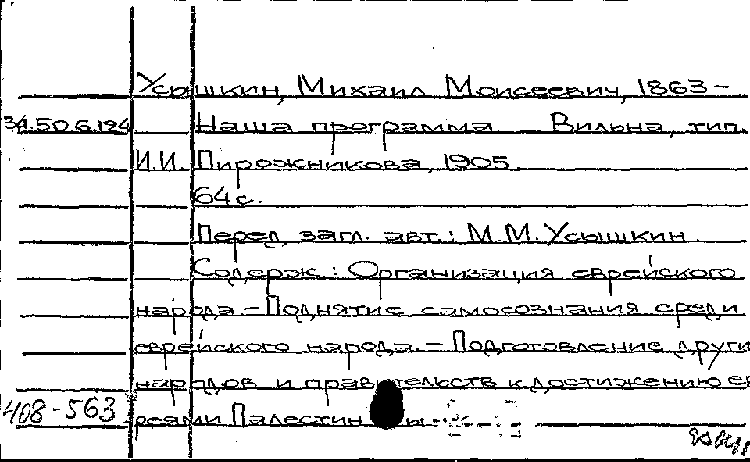 Усышкин, Михаил Моисеевич, 1863 –
34.50.6.194 Наша программа Вильна, тип.
И.И. Пирожникова, 1905.
64 с.
Перед загл. авт.: М.М. Усышкин
Содерж.: Организация еврейского
народа. – Поднятие самосознания среди
еврейского народа. – Подготовление други
народов и правительств к достижению ев
408-563 реями Палестин